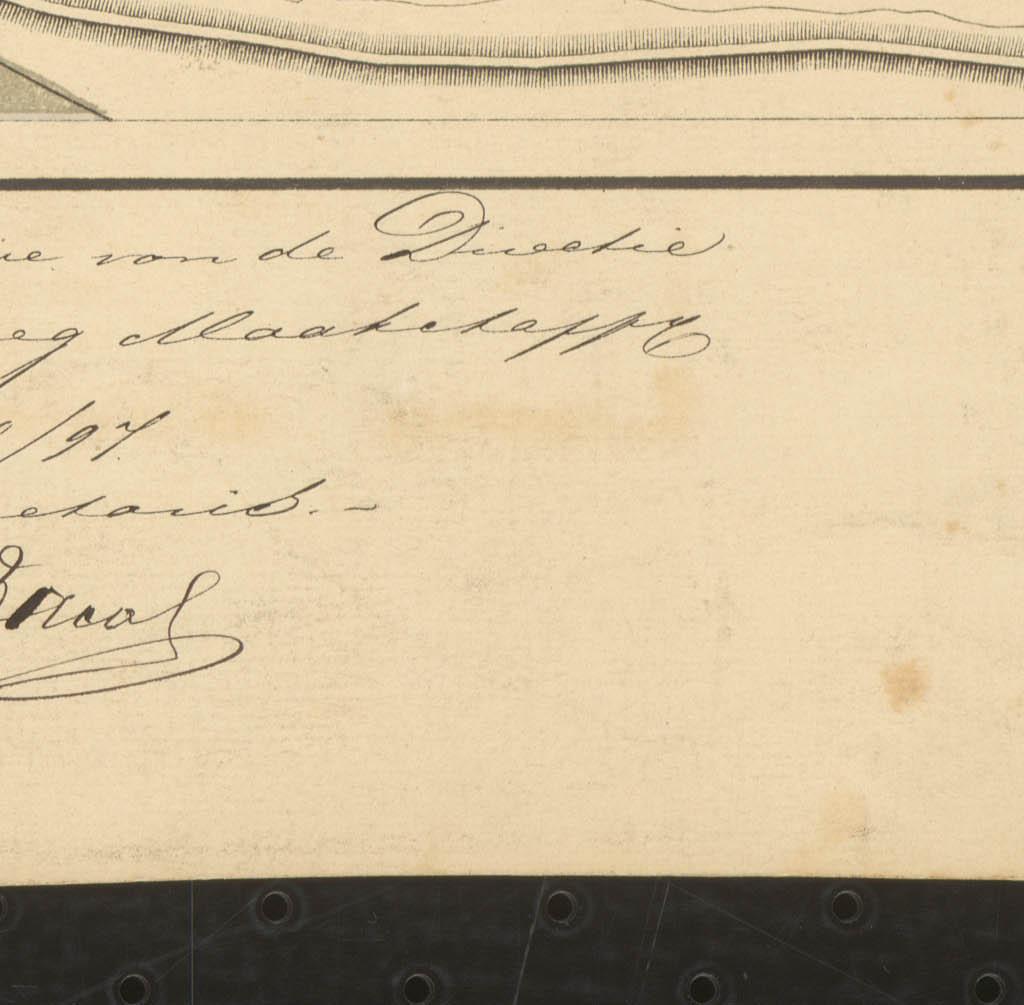 ie van de Directie
eg Maatschappy
/97.
etaris. -